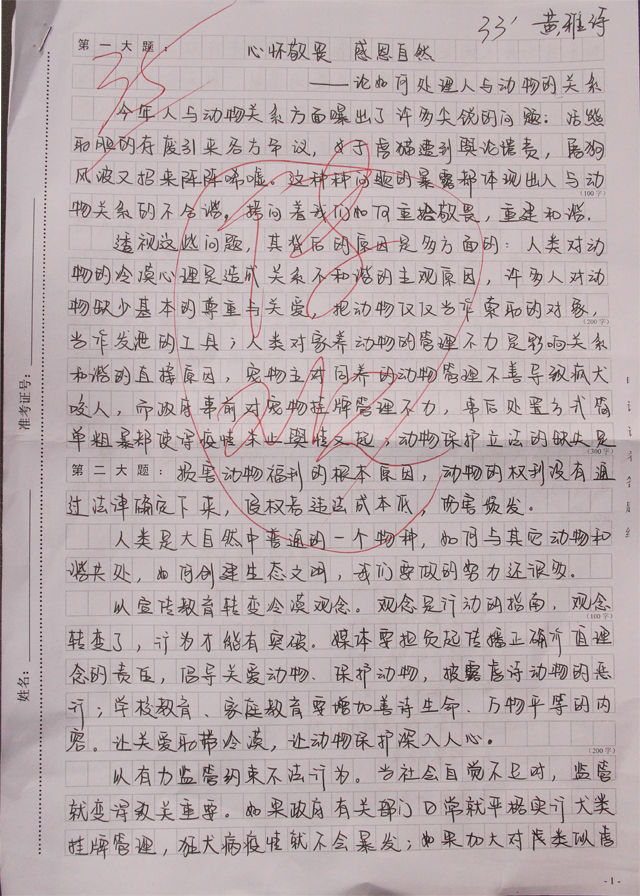 33' 黄雅诗
35
第一大题： 心怀敬畏 感恩自然
——论如何处理人与动物的关系
今年人与动物关系方面曝出了许多尖锐的问题：活熊
取胆的存废引来各方争议，女子虐猫遭到舆论谴责，屠狗
风波又招来阵阵唏嘘。这种种问题的暴露都体现出人与动
(100字)
物关系的不合谐。拷问着我们如何重拾敬畏，重建和谐。
透视这些问题，其背后的原因是多方面的：人类对动
物的冷漠心理是造成关系不和谐的主观原因，许多人对动
物缺少基本的尊重与关爱，把动物仅仅当作索取的对象，
(200字)
当作发泄的工具；人类对家养动物的管理不力是影响关系
和谐的直接原因，宠物主对饲养的动物管理不善导致疯犬
咬人，而政府事前对宠物挂牌管理不力，事后处置方式简
单粗暴都使得疫情未止舆情又起；动物保护立法的缺失是
(300字)
第二大题：损害动物福利的根本原因，动物的权利没有通
过法律确定下来，侵权者违法成本低，伤害频发。
人类是大自然中普通的一个物种，如何与其它动物和
谐共处，如何创建生态文明，我们要做的努力还很多。
以宣传教育转变冷漠观念。观念是行动的指南，观念
(100字)
转变了，行为才能有突破。媒体要担负起传播正确价值理
念的责任，倡导关爱动物、保护动物，披露虐待动物的恶
行；学校教育、家庭教育要增加善待生命、万物平等的内
容。让关爱取代冷漠，让动物保护深入人心。
(200字)
以有力监管约束不法行为。当社会自觉不足时，监管
就变得致关重要。如果政府有关部门日常就严格实行犬类
挂牌管理，狂犬病疫情就不会暴发；如果加大对类似虐
准考证号：
姓名：
- 1 -